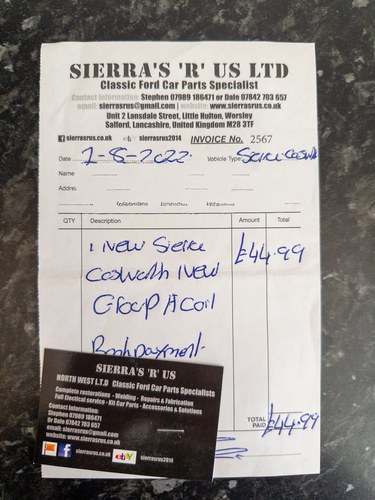 SIERRA'S 'R' US LTD
Classic Ford Car Parts Specialist
Contact Information: Stephen 07989 186471 or Dale 07842 703 657
email: sierrasrus@gmail.com | website: www.sierrasrus.co.uk
Unit 2 Lansdale Street, Little Hulton, Worsley
Salford, Lancashire, United Kingdom M28 3TF
sierrasrus.co.uk ebY sierrasrus2014 INVOICE No. 2567
Date 1-8-2022 Vehicle Type
Name
Addre.
QTY Description Amount Total
1 New Sierra £44.99
Cosworth 1 New
Group A Coil
Bank payment
TOTAL
PAID £44.99
SIERRA'S 'R' US
NORTH WEST L.T.D Classic Ford Car Parts Specialists
Complete restorations - Welding - Repairs & Fabrication
Full Electical service - Kit Car Parts - Accessories & Solutions
Contact Information:
Stephen 07989 186471
Or Dale 07842 703 657
email: sierrasrus@gmail.com
website: www.sierrasrus.co.uk
sierrasrus.co.uk ebY sierrasrus2014